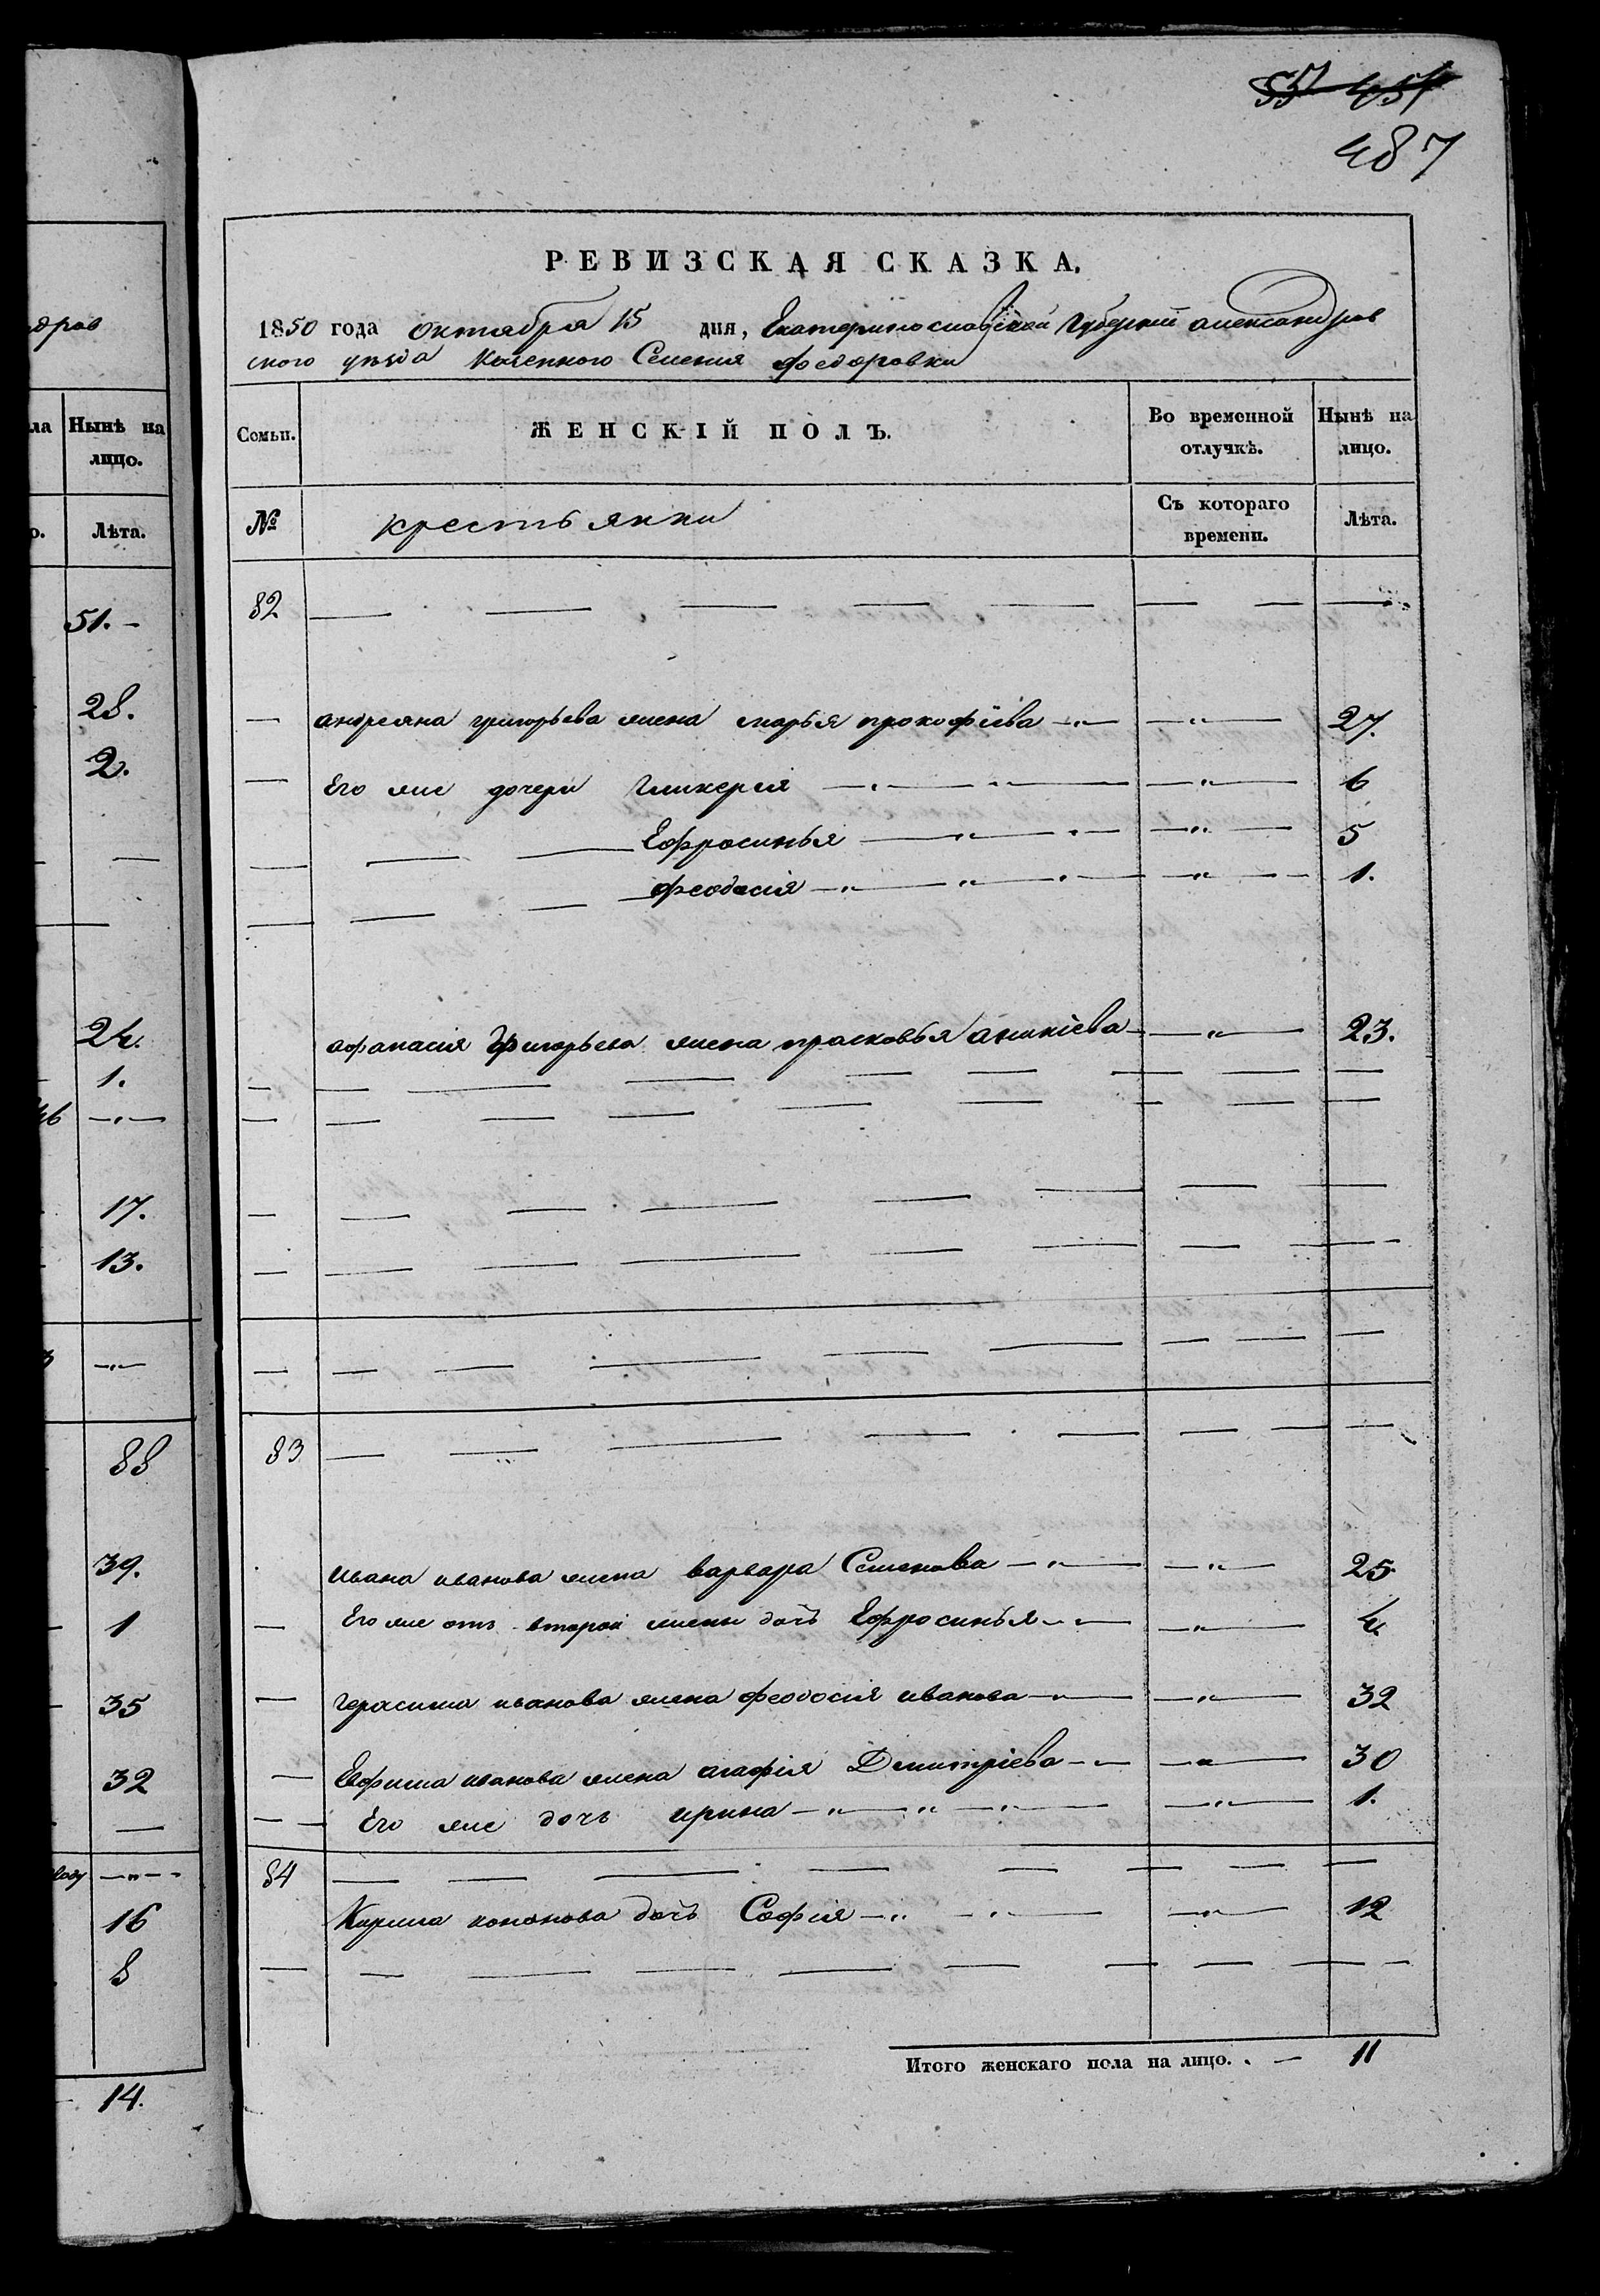 55 457
487
дров
ла Нынѣ на лицо.
о. Лѣта.
51.
28.
2.
24.
1.
17.
13.
88
39.
1
35
32
16
8
14.
РЕВИЗСКАЯ СКАЗКА.
1850 года октября 15 дня, Екатеринославской Губерніи александров
ского уѣзда Казенного Селения федоровки
Семьи. ЖЕНСКІЙ ПОЛЪ. Во временной отлучкѣ. Нынѣ на лицо.
№ крестьянки Съ котораго времени. Лѣта.
82
андреяна григорьева жена марья прокофіева — " — 27.
Его же дочери Гликерія — " — 6
Ефросинья — " — 5
феодосія — " — 1.
афанасія Григорьева жена прасковья аникіева — " — 23.
83
ивана иванова жена варвара Семенова — " — 25
Его же отъ второй жены дочь Ефросинья — " — 4
герасима иванова жена феодосія иванова — " — 32
Ефима иванова жена агафія Дмитріева — " — 30
Его же дочь ирина — " — 1.
84
Карпа кононова дочь Софія — " — 12
Итого женскаго пола на лицо. . — 11